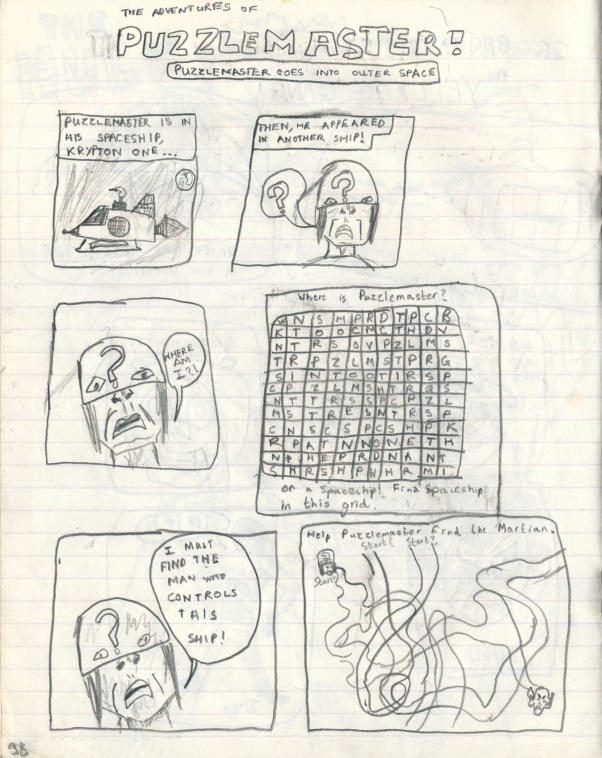 THE ADVENTURES OF
PUZZLEMASTER!
PUZZLEMASTER GOES INTO OUTER SPACE
PUZZLEMASTER IS IN
HIS SPACESHIP,
KRYPTON ONE...
THEN, HE APPEARED
IN ANOTHER SHIP!
?
?
?
WHERE
AM
I?!
Where is Puzzlemaster?
W N S H P R D T P C B
K T O O C M C T H D V
N T R S O V P Z L M S
T R P Z L M S T P R G
S I N T O O T I R S P
C P Z L M S H T R Q S
N T T R S S P C P Z L
M S T R E S N T R S P
C N S C S P C S H P K
R P A T N N O N E T H
N P H E P R D N A N T
S H R S H P H H R M I
on a Spaceship! Find Spaceship
in this grid.
?
I MUST
FIND THE
MAN WHO
CONTROLS
THIS
SHIP!
Help Puzzlemaster find the Martian.
Start? Start?
Start?
98